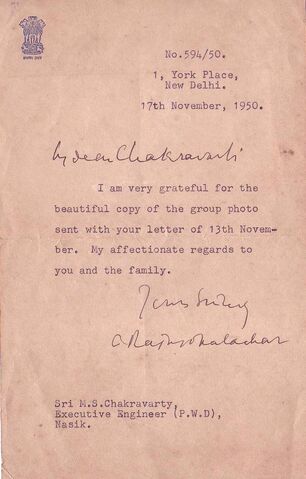 No.594/50.
1, York Place,
New Delhi.
17th November, 1950.
My dear Chakravarti
I am very grateful for the
beautiful copy of the group photo
sent with your letter of 13th Novem-
ber. My affectionate regards to
you and the family.
Yours Sincerely
C Rajagopalachari
Sri M.S.Chakravarty,
Executive Engineer (P.W.D),
Nasik.